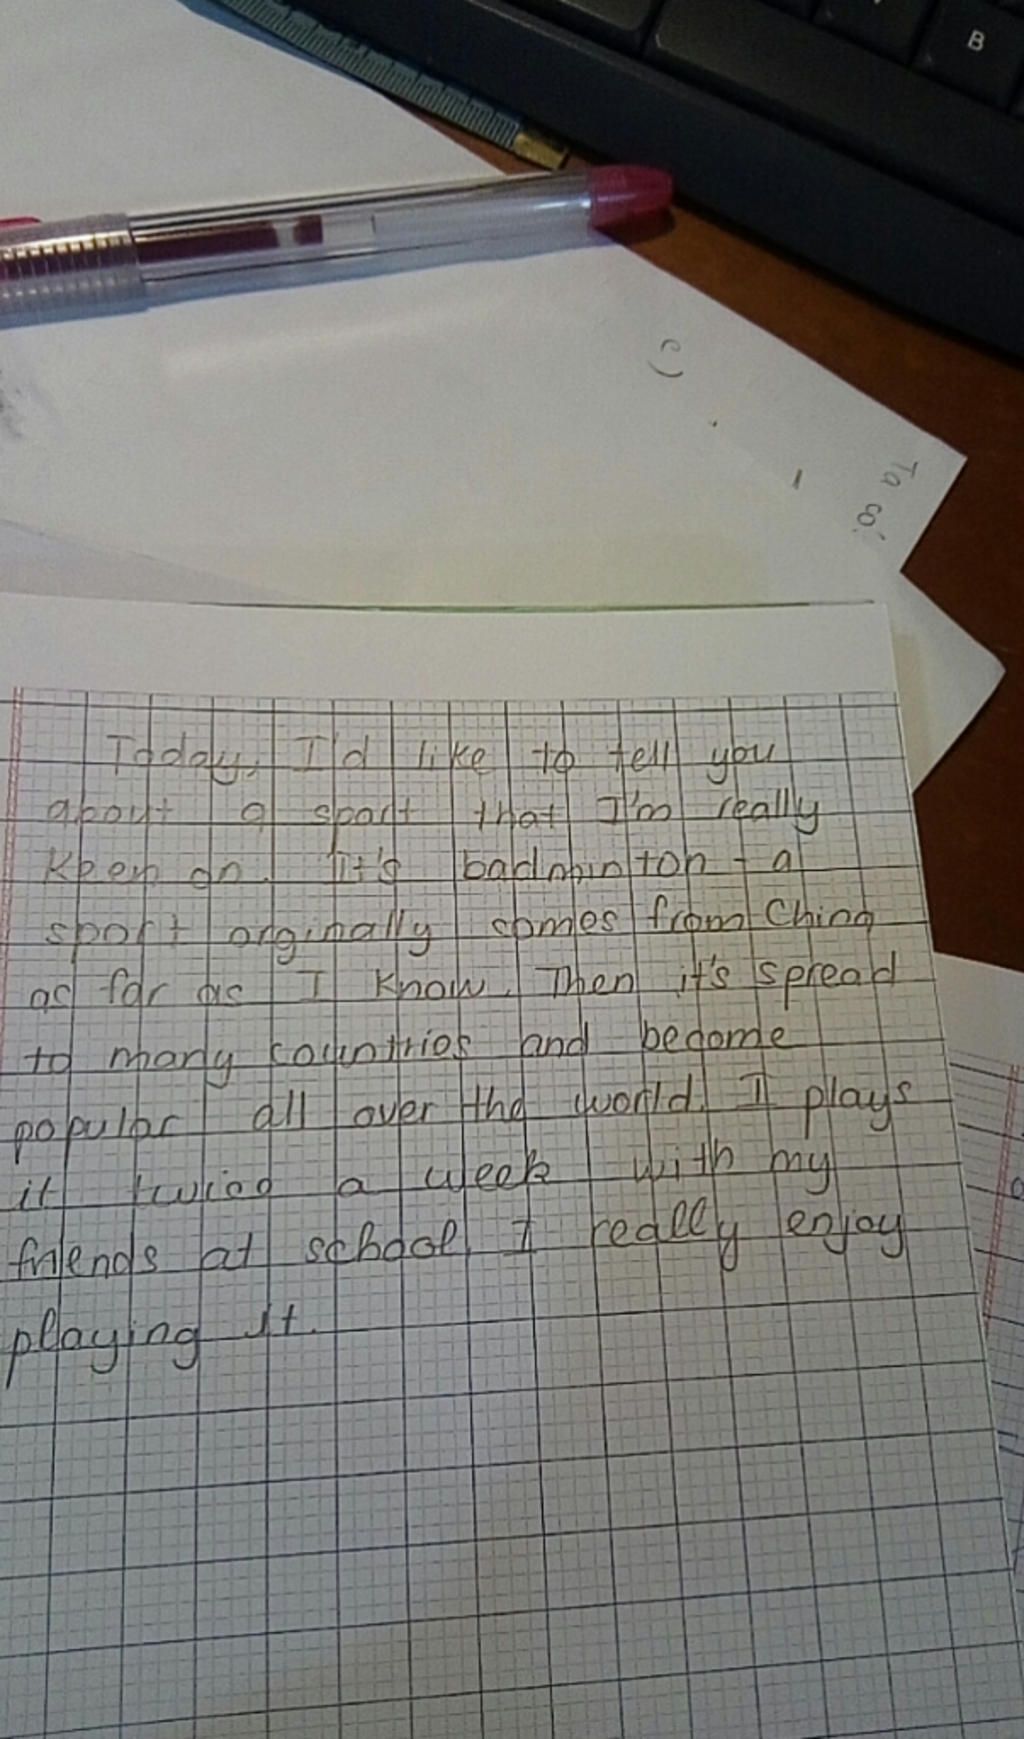 B
c)
Ta có:
Today, I'd like to tell you
about a sport that I'm really
keen on. It's badminton - a
sport orginally comes from China
as far as I know. Then it's spread
to many countries and become
popular all over the world. I plays
it twice a week with my
friends at school. I really enjoy
playing it.